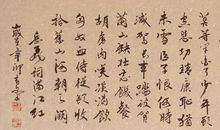 莫等閒白了少年頭
空悲切靖康恥猶
未雪臣子恨何時
滅駕長車踏破賀
蘭山缺壯志飢餐
胡虜肉笑談渴飲
匈奴血待從頭收
拾舊山河朝天闕
岳飛詞滿江紅